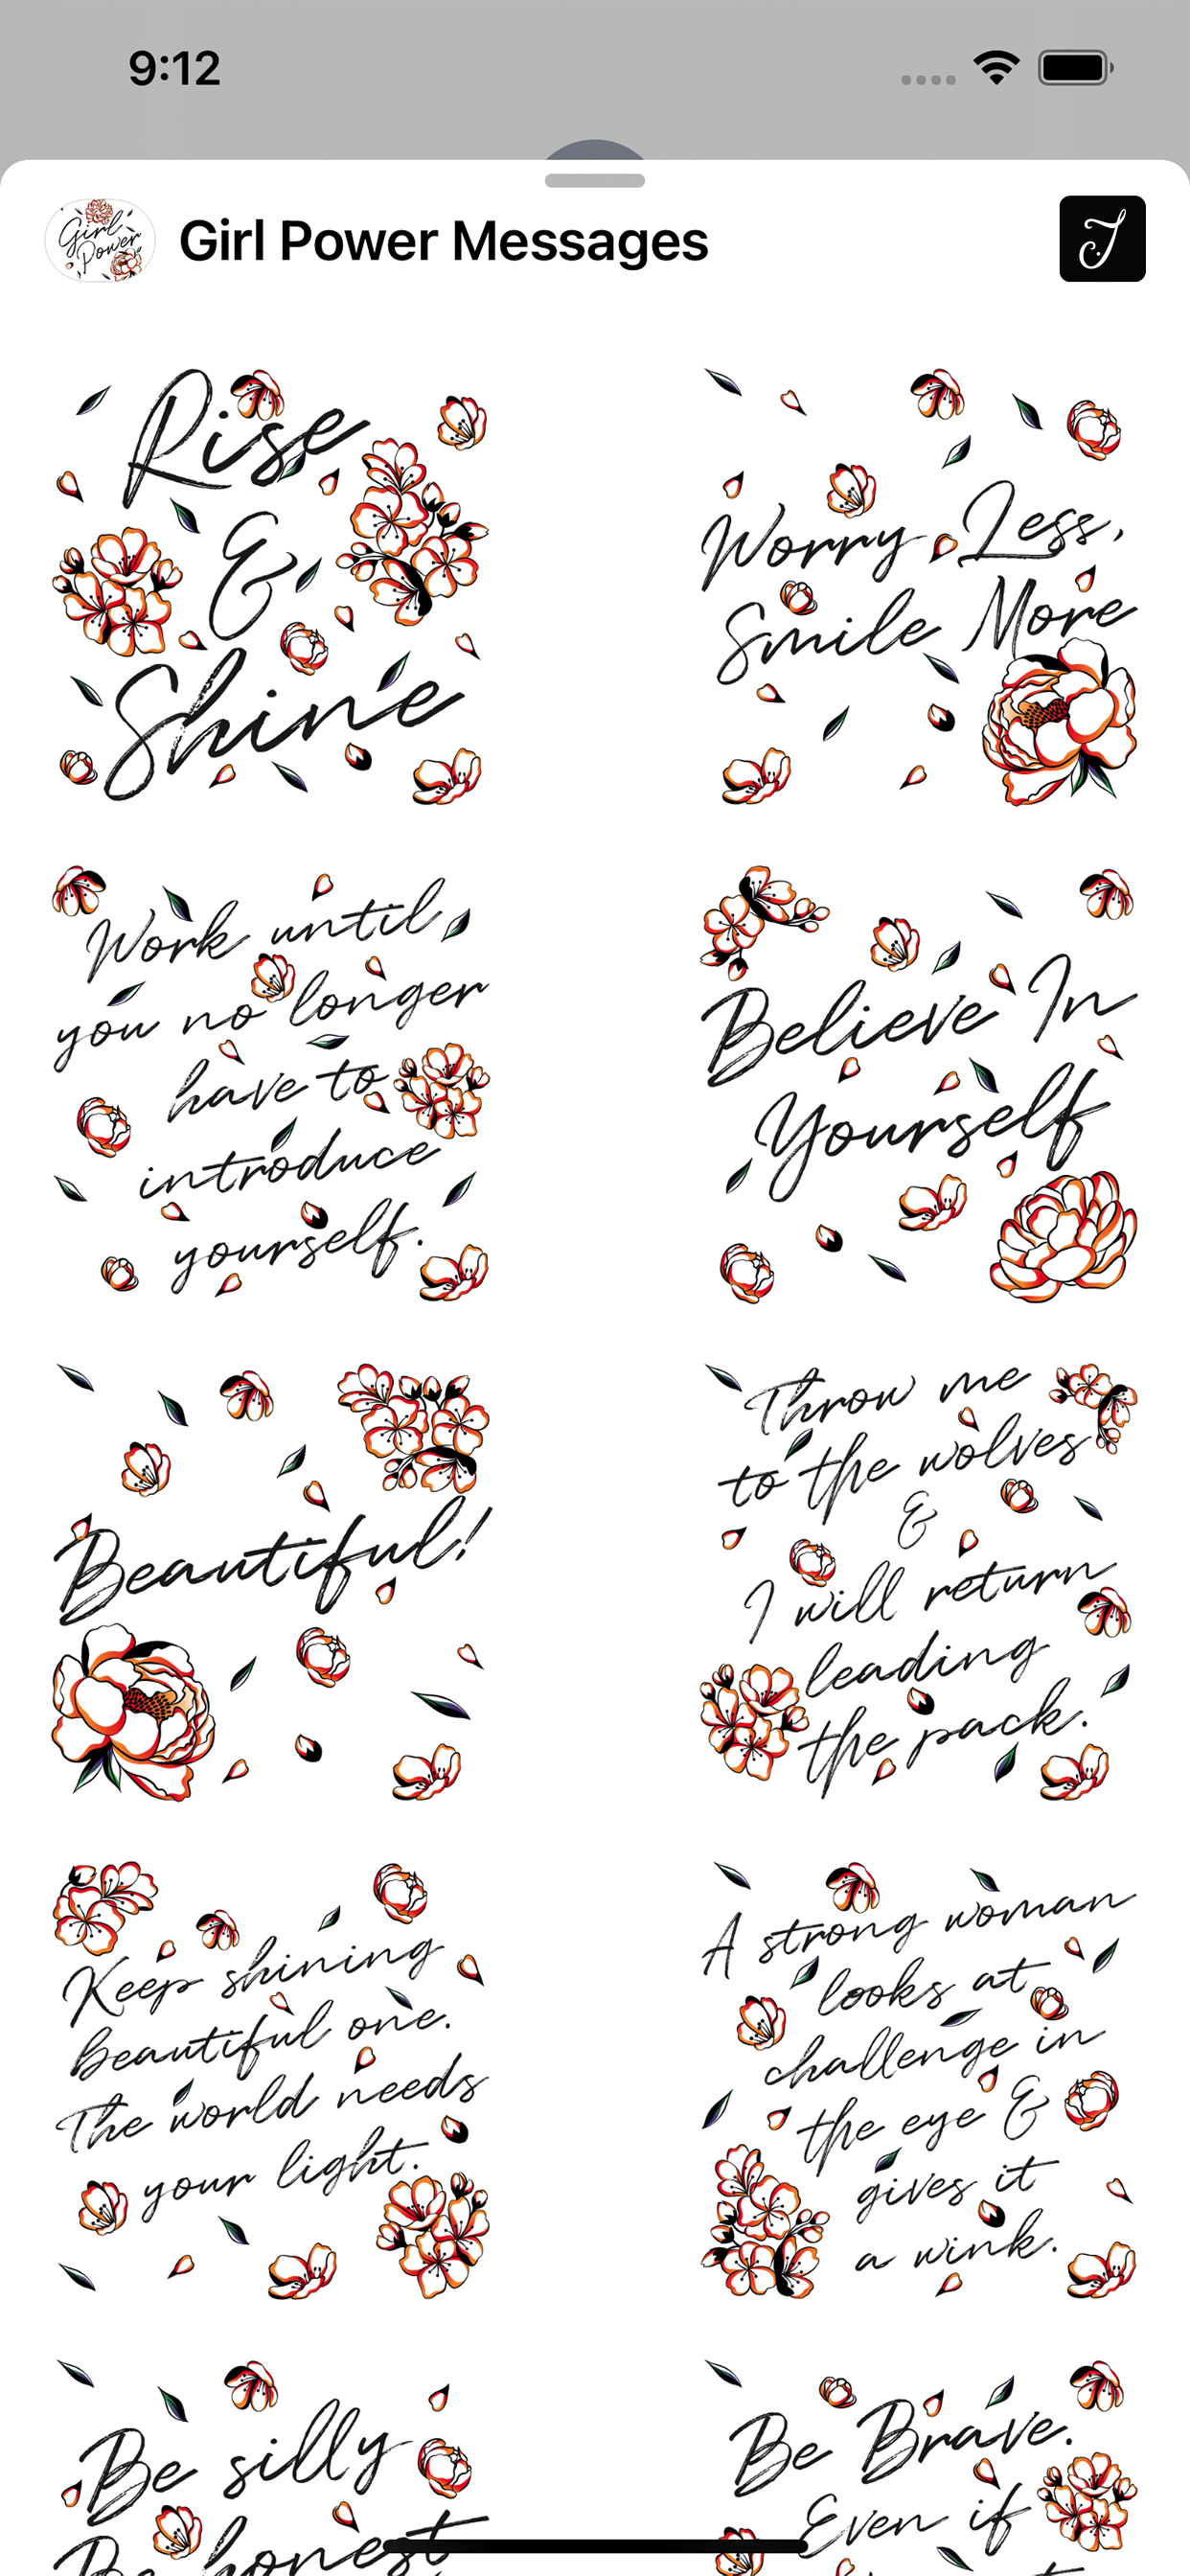 9:12
Girl Power
Girl Power Messages
J
Rise
&
Shine
Worry Less,
Smile More
Work until
you no longer
have to
introduce
yourself.
Believe In
Yourself
Beautiful!
Throw me
to the wolves
&
I will return
leading
the pack.
Keep shining
beautiful one.
The world needs
your light.
A strong woman
looks at
challenge in
the eye &
gives it
a wink.
Be silly
Be honest
Be Brave.
Even if